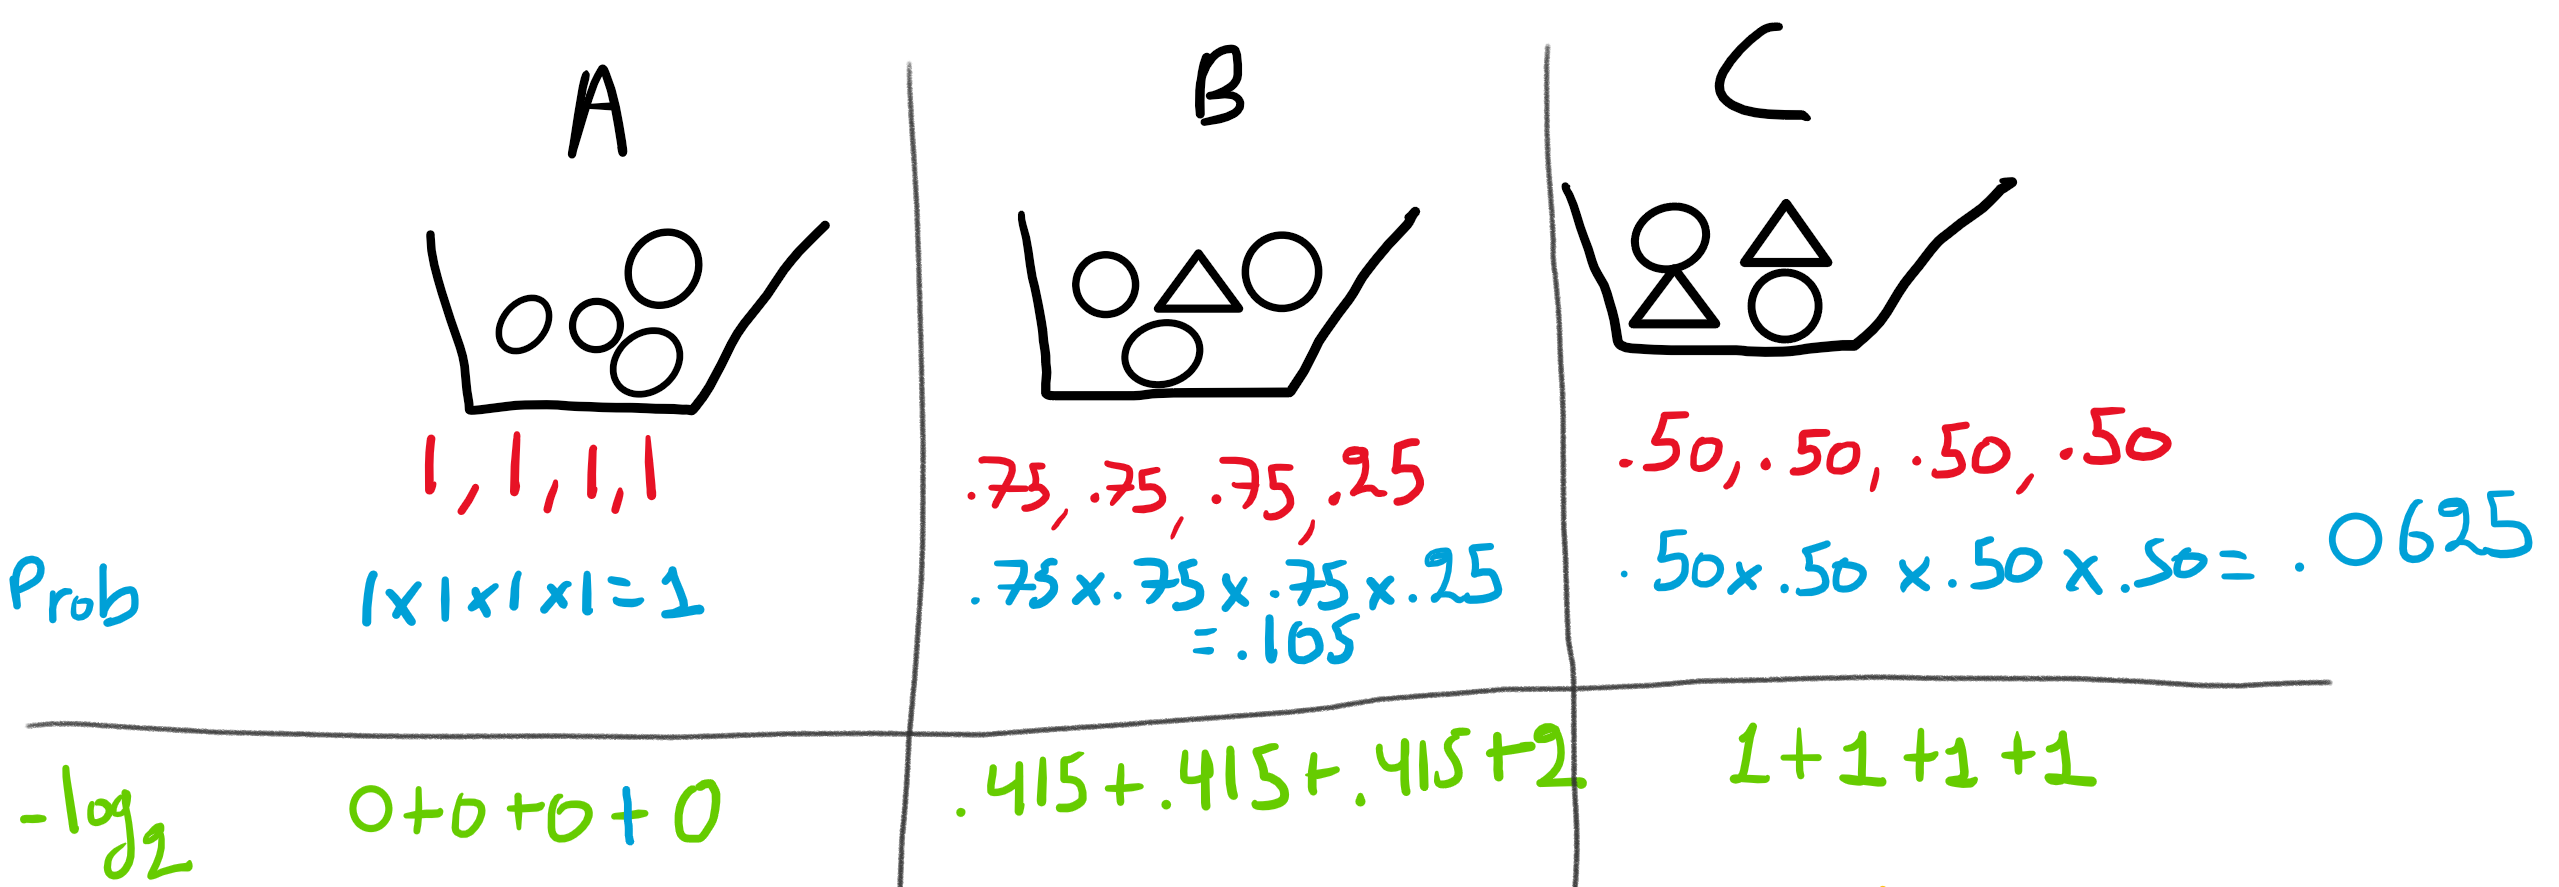 A
B
C
1, 1, 1, 1
.75, .75, .75, .25
.50, .50, .50, .50
Prob
1x1x1x1=1
.75x.75x.75x.25
=.105
.50x.50x.50x.50=.0625
-log2
0+0+0+0
.415+.415+.415+2
1+1+1+1